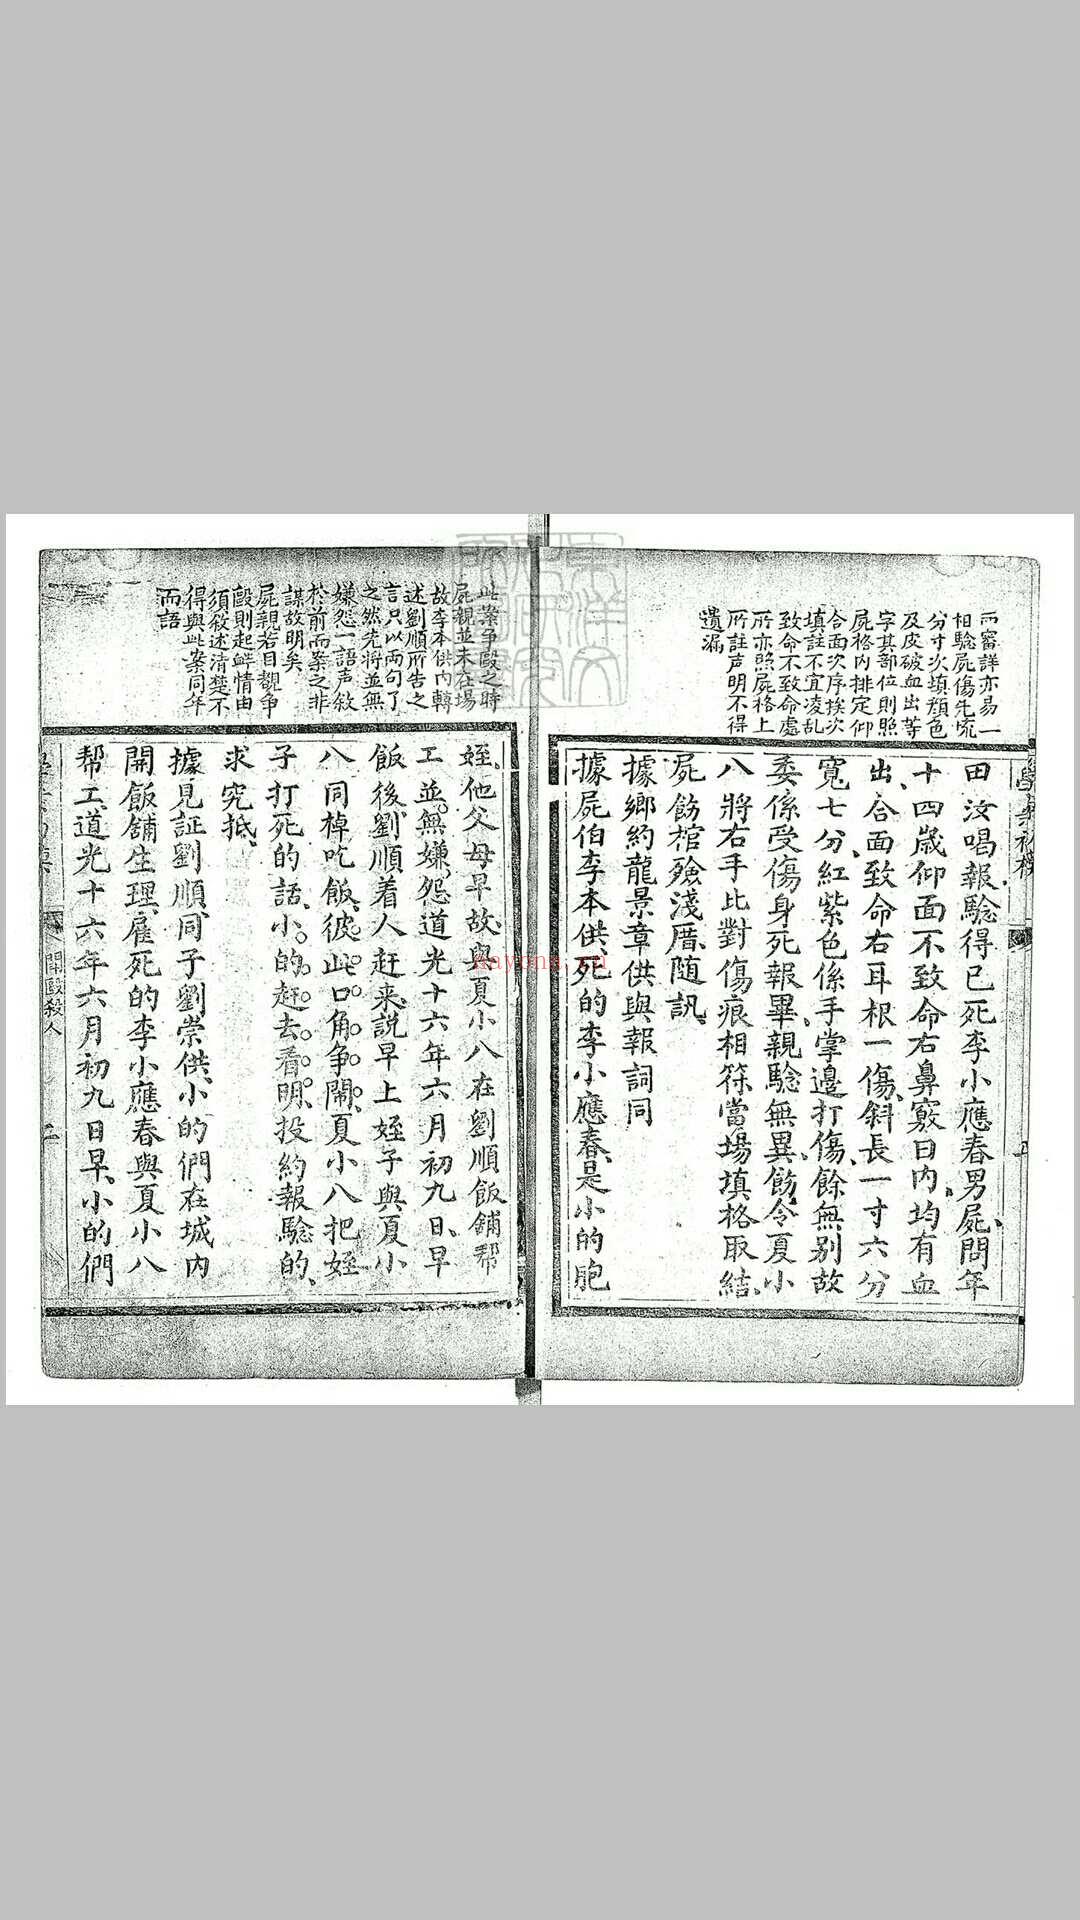 而審詳亦易一
相驗屍傷先吮
分寸次填顏色
及皮破血出等
字其部位則照
屍格內排定仰
合面次序挨次
填註不宜凌亂
致命不致命處
所亦照屍格上
所註声明不得
遺漏
田汝唱報驗得已死李小應春男屍問年
十四歲仰面不致命右鼻竅曰內均有血
出合面致命右耳根一傷斜長一寸六分
寬七分紅紫色係手掌邊打傷餘無别故
委係受傷身死報畢親驗無異飭令夏小
八將右手比對傷痕相符當場填格取結
屍飭棺殮淺厝随訊
據鄉約龍景章供與報詞同
據屍伯李本供死的李小應春是小的胞
此案争毆之時
屍親並未在場
故李本供內轉
述劉順所告之
言只以兩句了
之然先將並無
嫌怨一語声敘
於前而案之非
謀故明矣
屍親若目覩争
毆則起衅情由
須敘述清楚不
得與此案同年
而語
姪他父母早故與夏小八在劉順飯舖帮
工並無嫌怨道光十六年六月初九日早
飯後劉順着人赶来說早上姪子與夏小
八同棹吃飯彼此口角争鬧夏小八把姪
子打死的話小的赶去看明投約報驗的
求究抵
據見証劉順同子劉崇供小的們在城內
開飯舖生理雇死的李小應春與夏小八
帮工道光十六年六月初九日早小的們
鬪毆殺人
二
nayona.cn